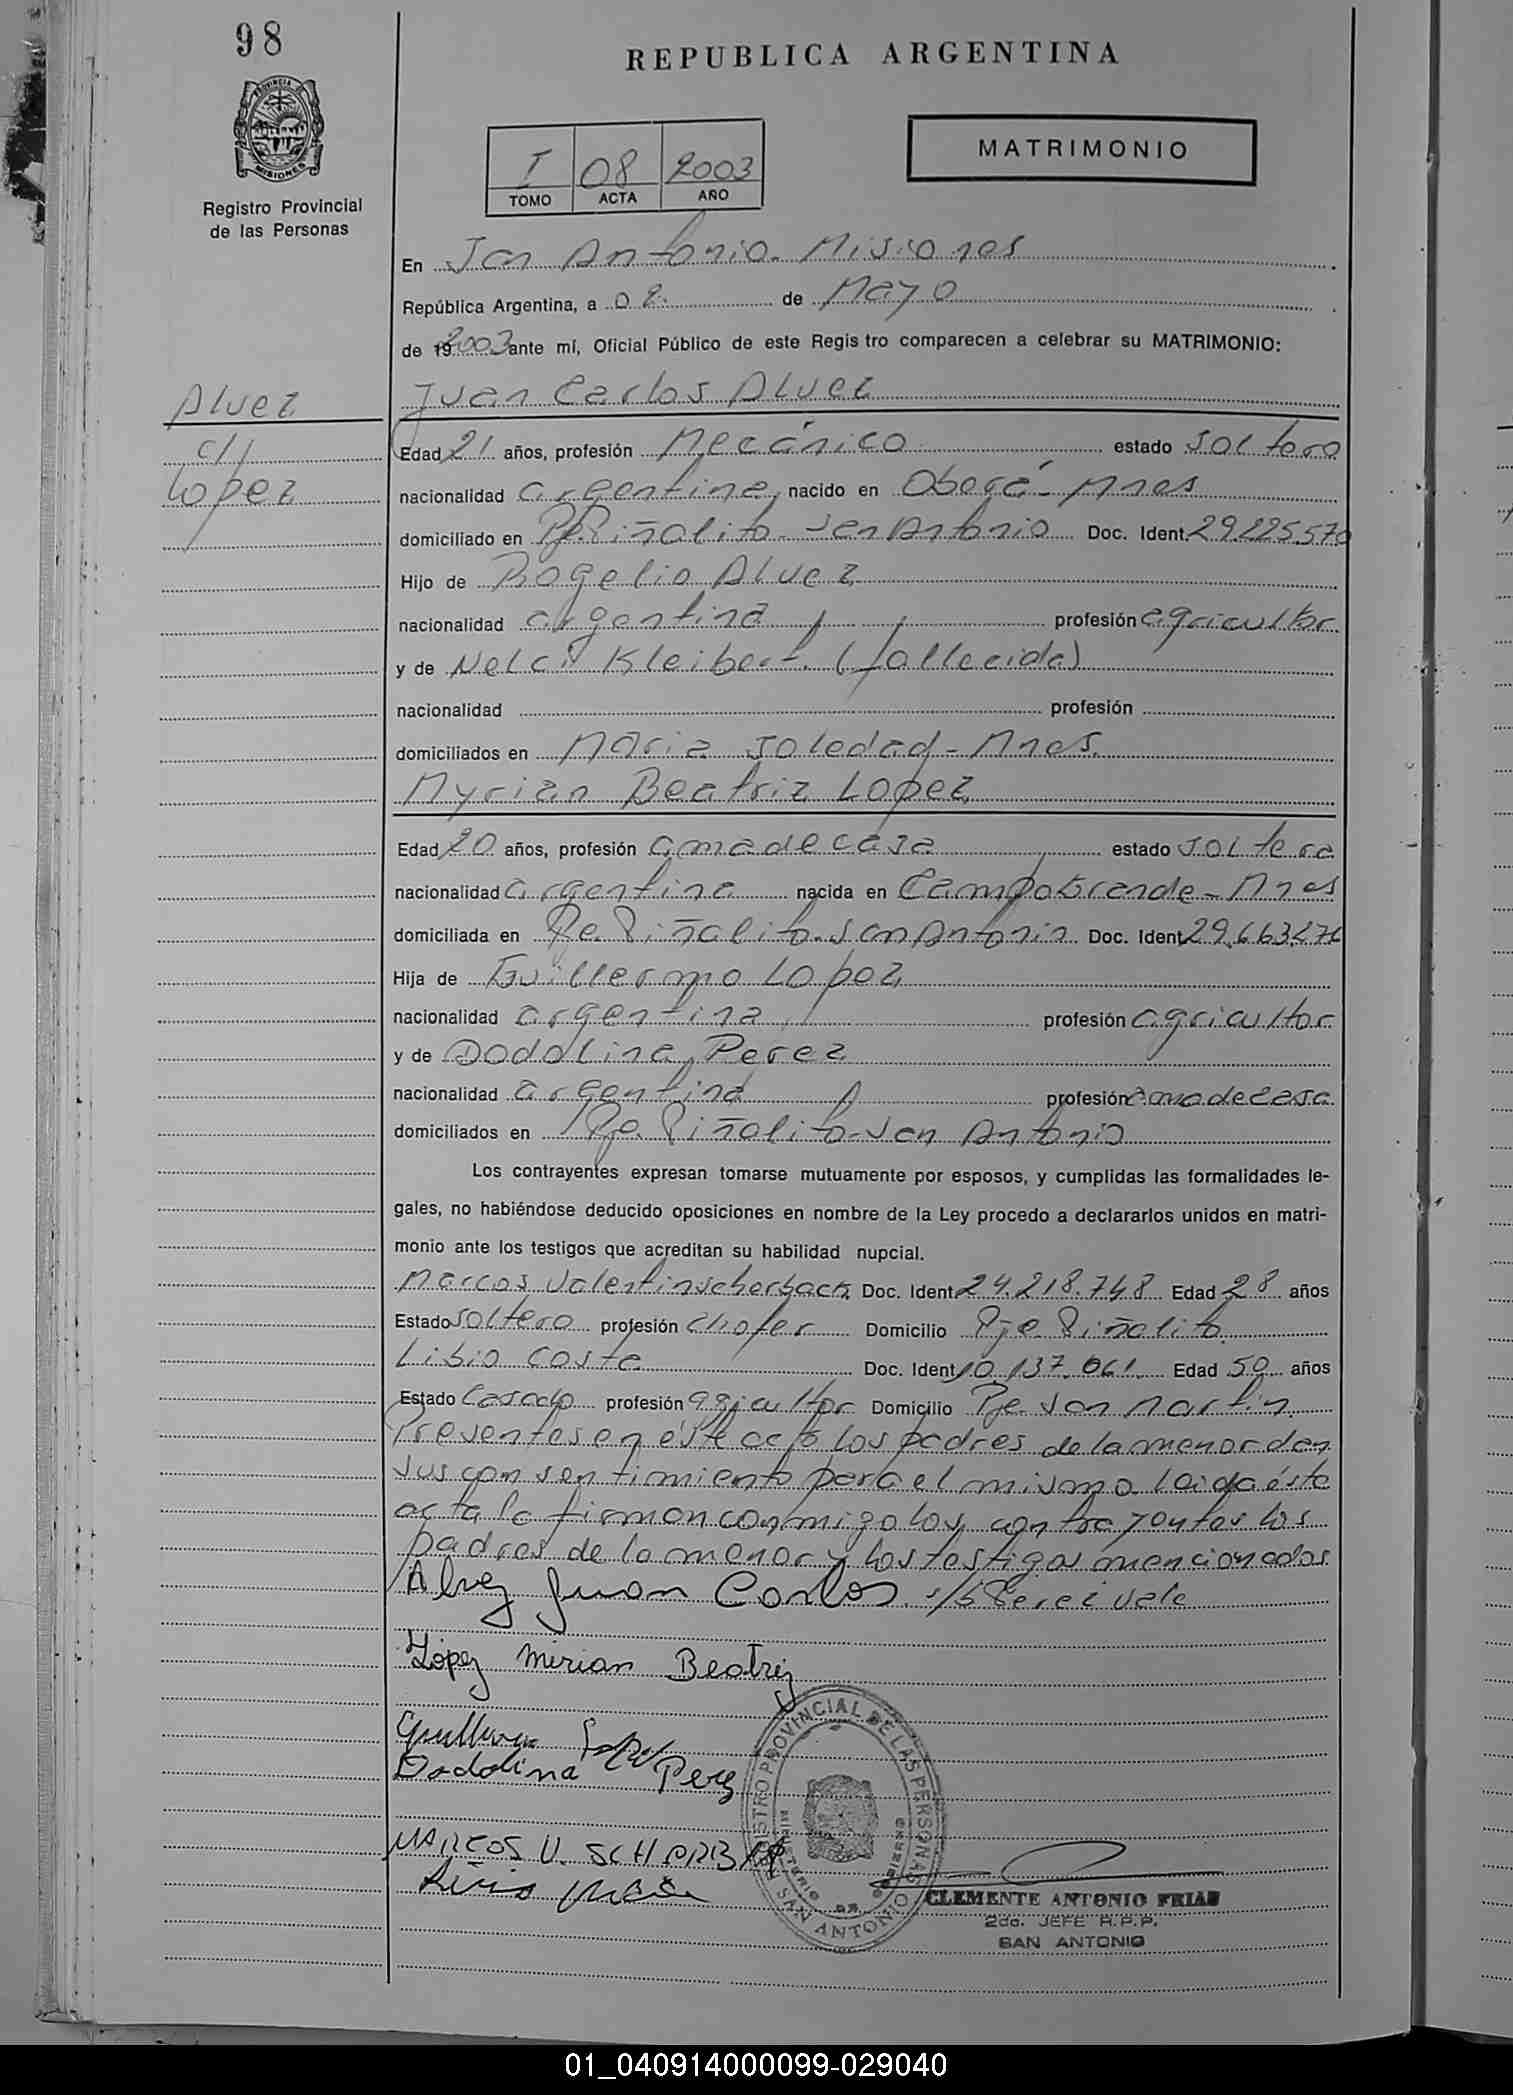 98
REPUBLICA ARGENTINA
PROVINCIA DE MISIONES
Registro Provincial
de las Personas
I 08 2003
TOMO ACTA AÑO
MATRIMONIO
En San Antonio. Misiones
República Argentina, a 02. de Mayo
de 19 2003 ante mí, Oficial Público de este Regis tro comparecen a celebrar su MATRIMONIO:
Alvez
Juan Carlos Alvez
c//
Edad 21 años, profesión Mecánico estado soltero
Lopez
nacionalidad argentina nacido en Oberá - Mnes
domiciliado en Pje. Piñalito - San Antonio Doc. Ident. 29.225.570
Hijo de Rogelio Alvez
nacionalidad argentina profesión agricultor
y de Nelci Kleibert. (fallecida)
nacionalidad profesión
domiciliados en Maria Soledad - Mnes.
Myrian Beatriz Lopez
Edad 20 años, profesión ama de casa estado soltera
nacionalidad argentina nacida en Campo Grande - Mnes
domiciliada en Pje. Piñalito - San Antonio Doc. Ident. 29.663.276
Hija de Guillermo Lopez
nacionalidad argentina profesión agricultor
y de Dodolina Perez
nacionalidad argentina profesión ama de casa
domiciliados en Pje. Piñalito - San Antonio
Los contrayentes expresan tomarse mutuamente por esposos, y cumplidas las formalidades le-
gales, no habiéndose deducido oposiciones en nombre de la Ley procedo a declararlos unidos en matri-
monio ante los testigos que acreditan su habilidad nupcial.
Marcos Valentin Scherback Doc. Ident. 24.218.748 Edad 28 años
Estado soltero profesión chofer Domicilio Pje. Piñalito
Libio Costa Doc. Ident. 10.137.061 Edad 50 años
Estado Casado profesión agricultor Domicilio Pje. San Martin
Presentes en éste acto los padres de la menor dan
sus consentimiento para el mismo. Leida éste
acta la firman conmigo los contrayentes los
padres de la menor y los testigos mencionados
Alvez Juan Carlos vale
López Mirian Beatriz
Guillermo
Dodolina Perez
MARCOS V.
REGISTRO PROVINCIAL DE LAS PERSONAS
SAN ANTONIO
CLEMENTE ANTONIO FRIAS
2do. JEFE R.P.P.
SAN ANTONIO
01_040914000099-029040